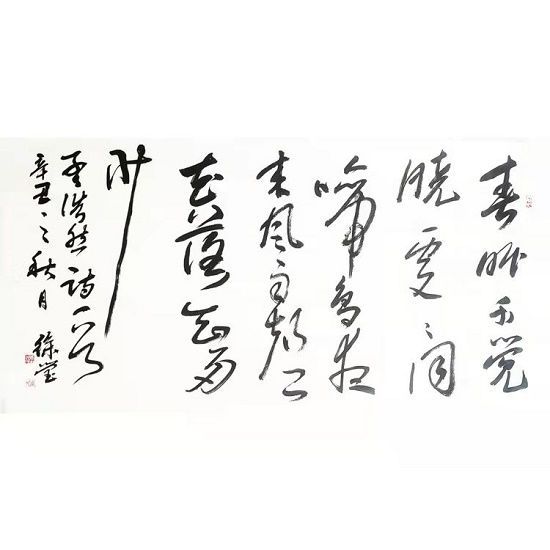 春眠不觉
晓處〻闻
啼鸟夜
来风雨聲
花落知多
少
孟浩然诗一首
辛丑之秋月 徐莹